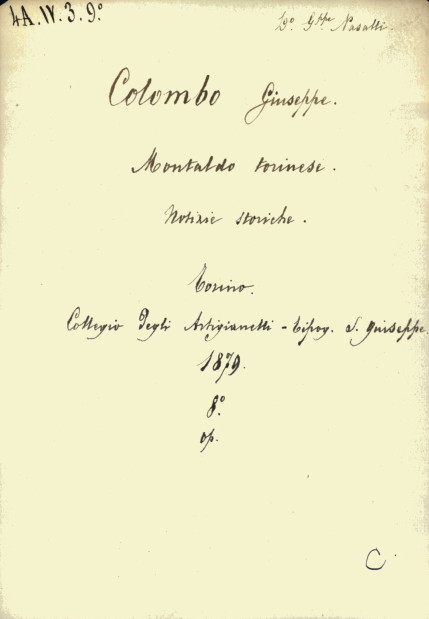 4A.IV.3.9.°
D.° G.ppe Nasalli.
Colombo Giuseppe.
Montaldo torinese.
Notizie storiche.
Torino.
Collegio degli Artigianelli - tipog. S. Giuseppe.
1879.
8.°
op.
C.